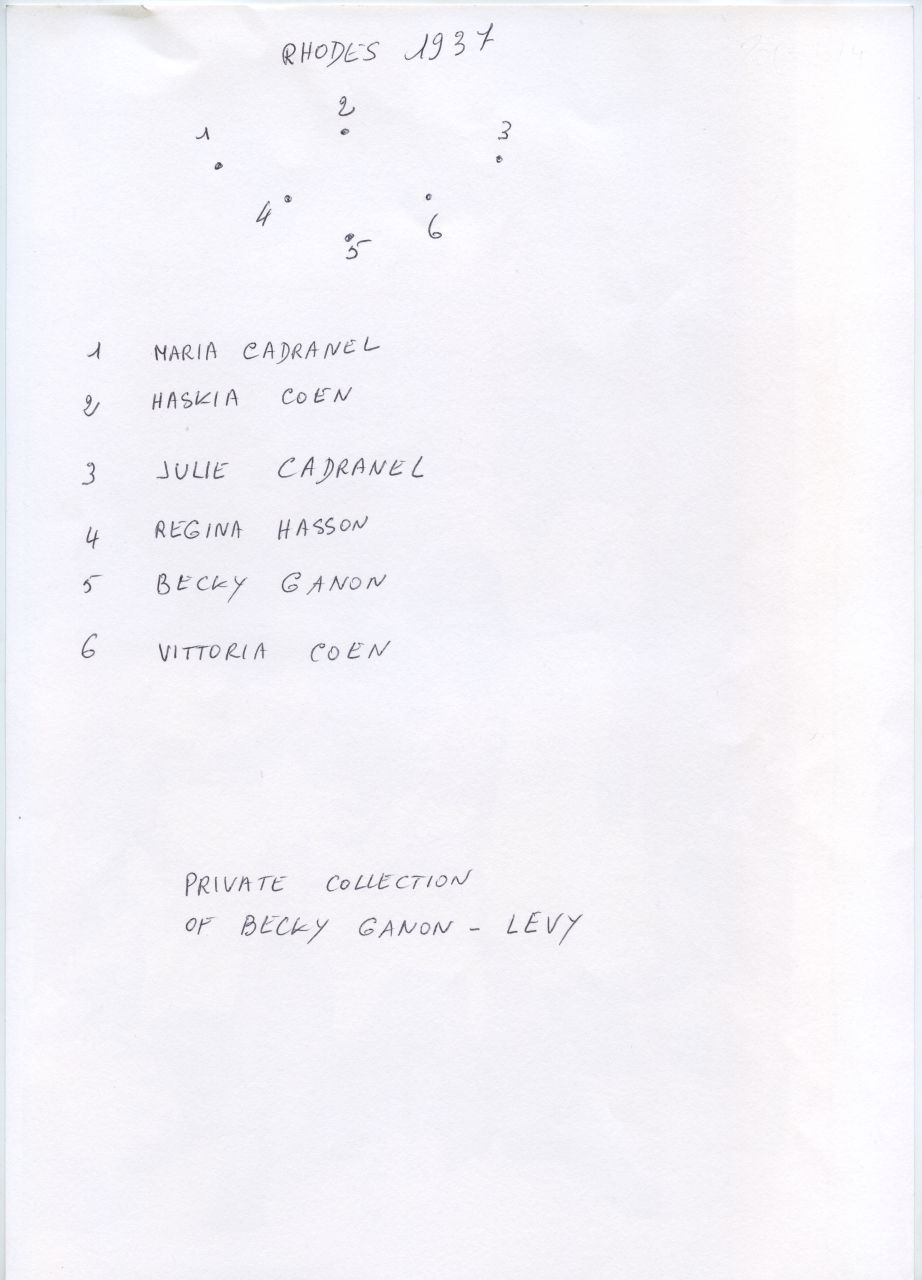 RHODES 1937
2
1 3
4 6
5
1 MARIA CADRANEL
2 HASKIA COEN
3 JULIE CADRANEL
4 REGINA HASSON
5 BECKY GANON
6 VITTORIA COEN
PRIVATE COLLECTION
OF BECKY GANON - LEVY